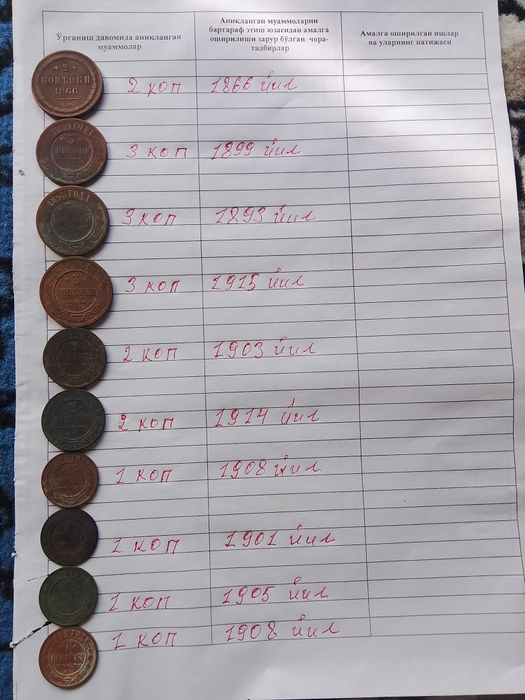 Ўрганиш давомида аниқланган
муаммолар
Аниқланган муаммоларни
бартараф этиш юзасидан амалга
оширилиши зарур бўлган чора-
тадбирлар
Амалга оширилган ишлар
ва уларнинг натижаси
2
КОПѢЙКИ
1866
2 коп 1866 йил
3 коп 1899 йил
1893 ГОДА
3 коп 1893 йил
3
3 коп 1915 йил
2 коп 1903 йил
2
2 коп 1914 йил
1 коп 1908 йил
1 коп 1901 йил
1 коп 1905 йил
1 коп 1908 йил